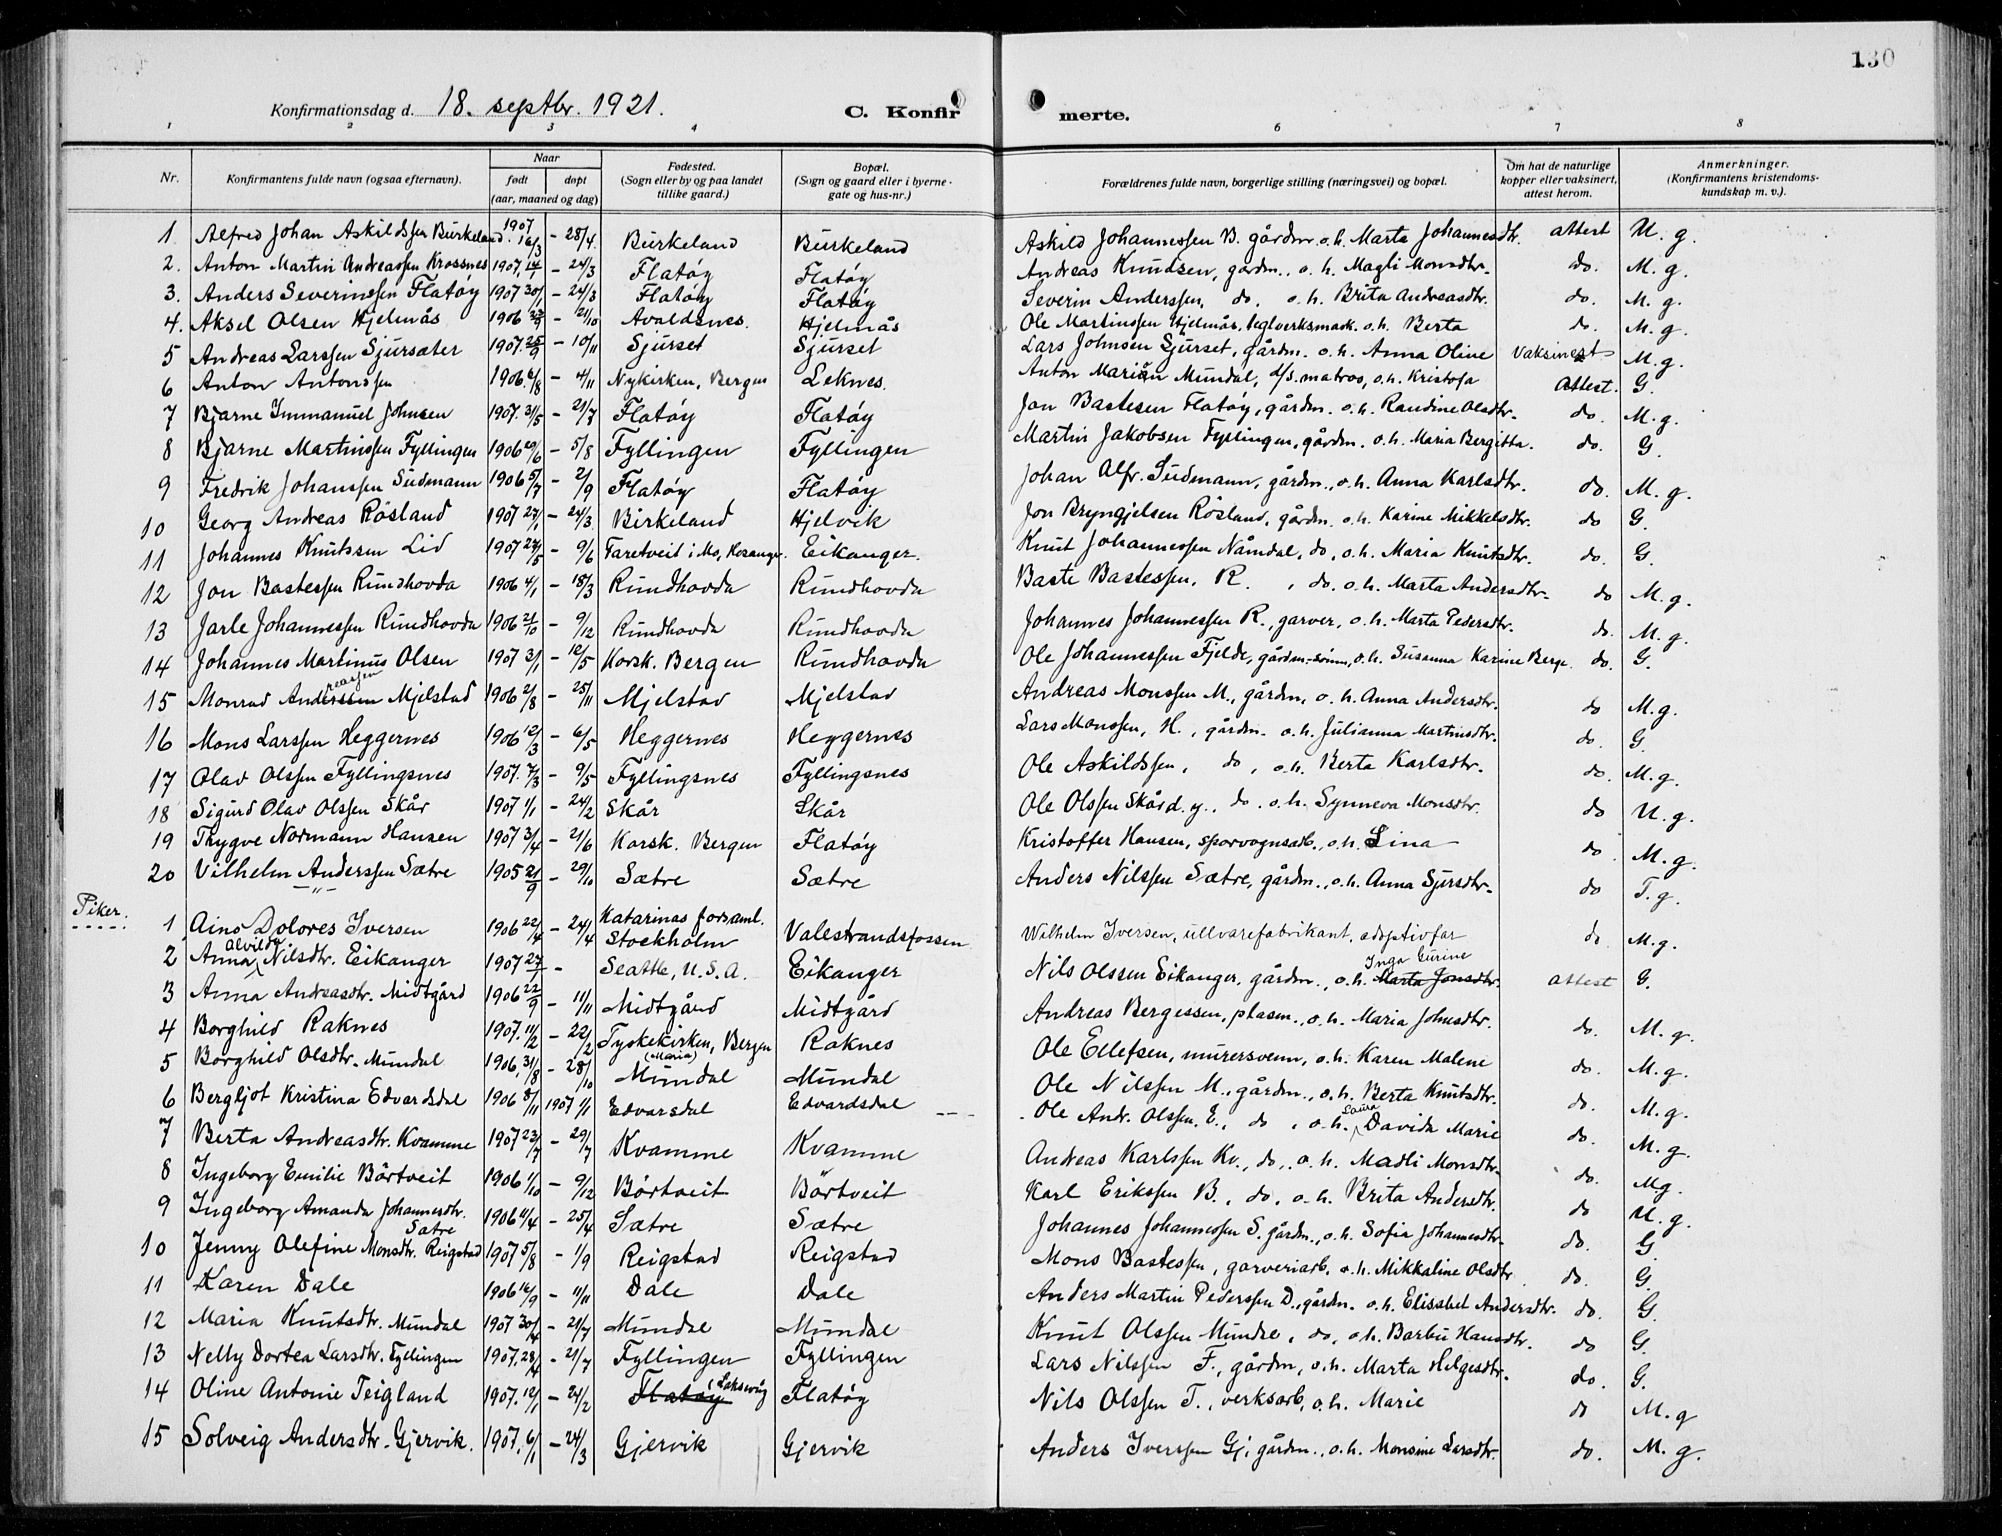 130
Konfirmationsdag d. 18. septbr. 1921.
C. Konfirmerte.
1 2 3 4 6 7 8
Nr.
Konfirmantens fulde navn (ogsaa efternavn).
Naar
født døpt
(aar, maaned og dag)
Fødested.
(Sogn eller by og paa landet
tillike gaard.)
Bopæl.
(Sogn og gaard eller i byerne
gate og hus-nr.)
Forældrenes fulde navn, borgerlige stilling (næringsvei) og bopæl.
Om hat de naturlige
kopper eller vaksinert,
attest herom.
Anmerkninger.
(Konfirmantens kristendoms-
kundskap m. v.).
1 Alfred Johan Askildssen Burkeland. 1907 16/3 - 28/4. Burkeland Burkeland Askild Johannessen B. gårdm. o.h. Marta Johannesdtr. attest U. g.
2. Anton Martin Andreassen Krossnes 1907, 14/1 - 24/3 Flatøy Flatøy Andreas Knudsen, gårdm., o. h. Magli Monsdtr. do. M. g.
3. Anders Severinssen Flatøy 1907 30/1 - 24/3 Flatøy Flatøy Severin Anderssen, do, o.h. Brita Andreasdtr. do. M. g.
4. Aksel Olsen Hjelmås 1906 22/9 - 21/10 Avaldsnes. Hjelmås Ole Martinssen Hjelmås, teglverksmask. o.h. Berta do. M. g.
5 Andreas Larssen Sjursæter 1907. 25/9 - 10/11 Sjurset Sjurset Lars Johnsen Sjurset, gårdm. o.h. Anna Oline Vaksinert M. g.
6 Anton Antonssen 1906. 6/8 - 4/11 Nykirken, Bergen Leknes. Anton Mariån Mundal, d/s. matros, o.h. Kristofa attest. G.
7 Bjarne Immanuel Johnsen 1907. 31/5 - 21/7 Flatøy Flatøy Jon Bastesen Flatøy, gårdm. o.h. Randine Olsdtr. do. M. g.
8 Bjarne Martinssen Fyllingen 1906 20/6 - 5/8 Fyllingen Fyllingen Martin Jakobsen Fyllingen, gårdm. o.h. Maria Bergitta. do. G.
9 Fredrik Johanssen Sudmann 1906 5/7 - 2/9 Flatøy Flatøy Johan Alfr. Sudmann, gårdm., o.h. Anna Karlsdtr. do. M. g.
10 Georg Andreas Røsland 1907 27/1 - 24/3 Birkeland Hjelvik Jon Bryngjelsen Røsland, gårdm. o.h. Karine Mikkelsdtr. do G.
11 Johannes Knutssen Lid 1907 22/5 - 9/6 Faretveit i Mo, Hosanger. Eikanger. Knut Johannessen Nåmdal, do, o.h. Maria Knutsdtr. do. G.
12 Jon Bastessen Rundhovda 1906 4/1 - 18/3 Rundhovda Rundhovda Baste Bastessen, R. , do. o.h. Marta Andersdtr. do M. g.
13 Jarle Johannessen Rundhovda 1906 21/10 - 9/12 Rundhovda Rundhovda Johannes Johannessen R., garver, o.h. Marta Pedersdtr. do. M. g.
14 Johannes Martinus Olsen 1907 3/1 - 12/5 Korsk. Bergen Rundhovda Ole Johannessen Fjelde, gårdm.-sønn, o.h. Susanna Karine Berge. do. G.
15 Monrad Anderssen reassen Mjelstad 1906 2/8 - 25/11 Mjelstad Mjelstad Andreas Monssen M., gårdm, o.h. Anna Andersdtr. do M. g.
16 Mons Larssen Heggernes 1906 12/3 - 6/5 Heggernes Heggernes Lars Monssen, H., gårdm. o.h. Julianna Martinsdtr. do. G.
17 Olav Olssen Fyllingsnes 1907. 7/3 - 9/5 Fyllingsnes Fyllingsnes Ole Askildssen, do, o.h. Berta Karlsdtr. do. M. g.
18 Sigurd Olav Olssen Skår 1907 1/1 - 24/2 Skår Skår Ole Olssen Skår d. y., do. o.h. Synneva Monsdtr. do U. g.
19 Trygve Normann Hansen 1907 3/4 - 21/6 Korsk. Bergen Flatøy Kristoffer Hansen, sporvognsarb., o.h. Lina do. M. g.
20 Vilhelm Anderssen Sætre 1905 21/9 - 29/10 Sætre Sætre Anders Nilssen Sætre, gårdm., o.h. Anna Sjursdtr. do T. g.
Piker.
1 Aino Dolores Iversen 1906 22/4 - 24/4 Katarinas forsaml. Stockholm Valestrandsfossen Wilhelm Iversen, ullvarefabrikant, adoptivfar do. M. g.
2 Anna Alvilda Nilsdtr. Eikanger 1907 27/1 - Seattle, U.S.A. Eikanger Nils Olssen Eikanger, gårdm., o.h. Marta Jonsdtr. Inga Gurine attest G.
3 Anna Andreasdtr. Midtgård 1906 22/9 - 11/11 Midtgård Midtgård Andreas Bergessen, plasm., o.h. Maria Johnsdtr. do. M. g.
4 Borghild Raknes 1907. 11/2 - 22/2 Tyskekirken, (Maria) Bergen Raknes Ole Ellefsen, murersvenn, o.h. Karen Malene do. M. g.
5 Borghild Olsdtr. Mundal 1906, 31/8 - 28/10 Mundal Mundal Ole Nilssen M., gårdm., o.h. Berta Knutsdtr. do. M. g.
6 Bergljot Kristina Edvardsdal 1906 8/11 1907 1/1 Edvarsdal Edvardsdal Ole Andr. Olssen. E., do, o.h. Laura Davida Marie do. M. g.
7 Berta Andreasdtr. Kvamme 1907 23/7 - 29/7 Kvamme Kvamme Andreas Karlssen Kv., do., o.h. Madli Monsdtr. do. Mg.
8 Ingeborg Emilie Börtveit 1906 1/10 - 9/12 Börtveit Börtveit Karl Erikssen B., do, o.h. Brita Andersdtr. do U. g.
9 Ingeborg Amanda Johannesdtr. Sætre 1906 4/4 - 25/4 Sætre Sætre Johannes Johannessen S. gårdm., o.h. Sofia Johannesdtr. do. G
10 Jenny Olefine Monsdtr. Reigstad 1907 5/8 - 1/9 Reigstad Reigstad Mons Bastessen, garveriarb. o.h. Mikkaline Olsdtr do. G.
11 Karen Dale 1906 16/9 - 11/11 Dale Dale Anders Martin Pederssen D., gårdm. o.h. Elisabet Andersdtr. do. G.
12 Maria Knutsdtr. Mundal 1907 30/4 - 21/7 Mundal Mundal Knut Olssen Mundal, do, o.h. Barbu Hansdtr. do G.
13 Nelly Dortea Larsdtr. Fyllingen 1907, 28/4 - 21/7 Fyllingen Fyllingen Lars Nilssen F., gårdm, o.h. Marta Helgesdtr. do. G.
14 Oline Antonie Teigland 1907. 12/1 - 24/2 Flatøy (Laksevåg Flatøy Nils Olssen T., verksarb, o.h. Marie do M. g
15 Solveig Andersdtr. Gjervik. 1907, 6/1 - 24/3 Gjervik Gjervik Anders Iverssen Gj. gårdm., o.h. Monsine Larsdtr. do. M. g.